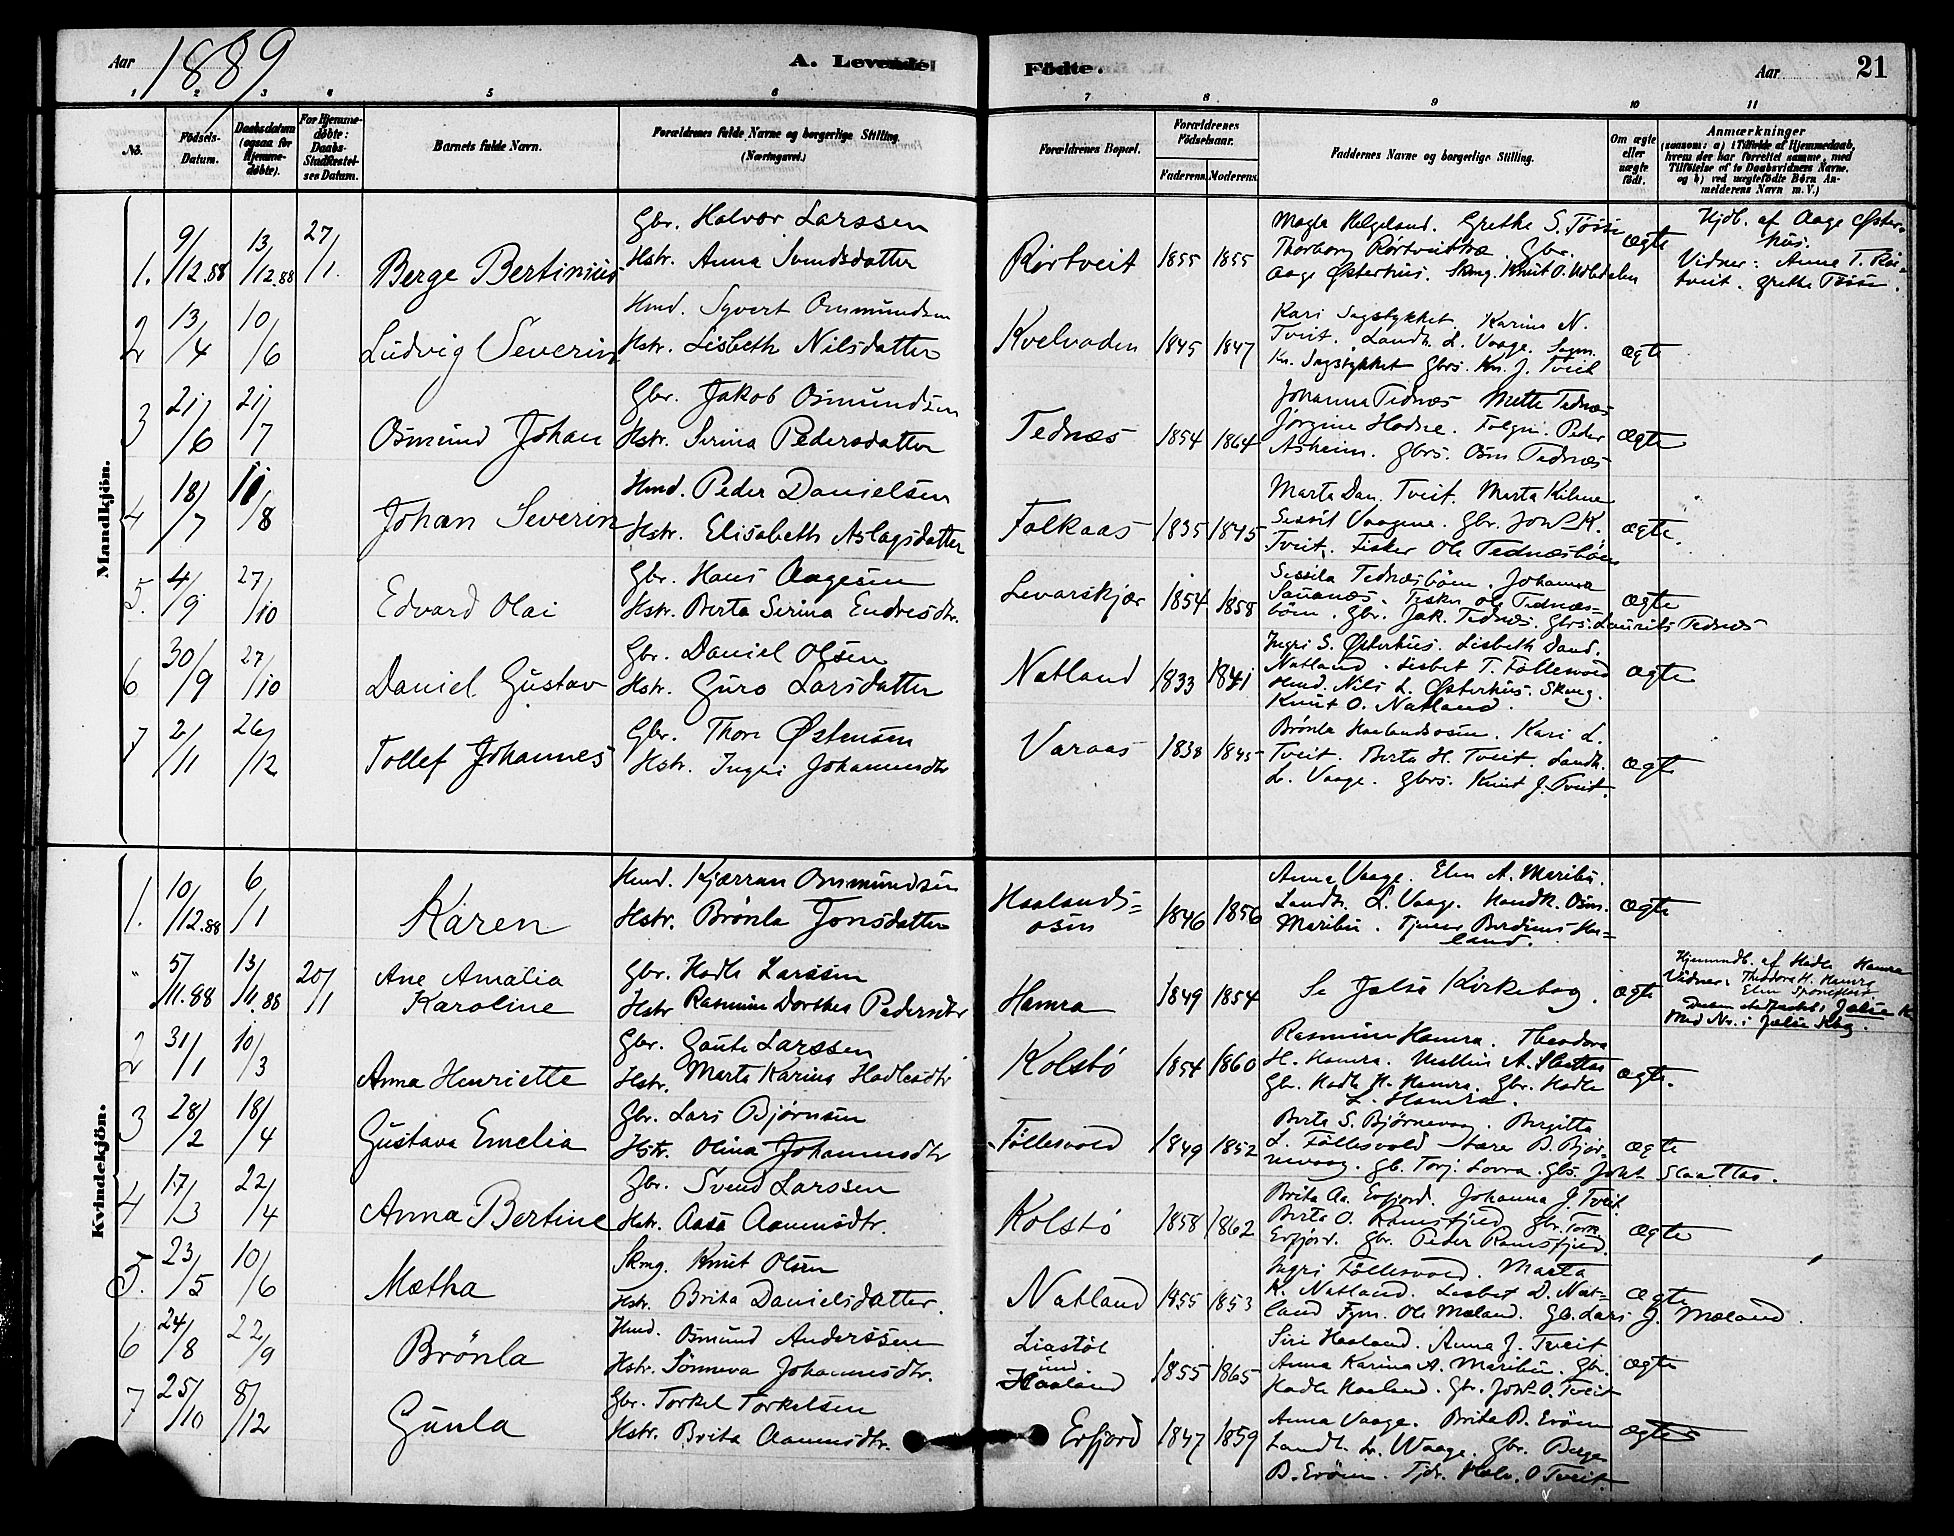 Aar 1889 A. Levende Födte. Aar 21
1 2 3 4 5 6 7 8 9 10 11
No.
Födsels-Datum.
Daabsdatum (ogsaa for Hjemme-döbte).
For Hjemme-döbte: Daabs-Stadfæstel-ses Datum.
Barnets fulde Navn.
Forældrenes fulde Navne og borgerlige Stilling. (Næringsvei.)
Forældrenes Bopæl.
Forældrenes Födselsaar.
Faderens. Moderens.
Faddernes Navne og borgerlige Stilling.
Om ægte eller uægte födt.
Anmærkninger
(saasom: a) i Tilfælde af Hjemmedaab, hvem der har forrettet samme, med Tilföielse af to Daabsvidners Navne. og b) ved uægtefödte Börn An-melderens Navn m. V.)
Mandkjön.
1. 9/12.88 13/12.88 27/1. Berge Bertinius
Gbr. Halvor Larssen
Hstr. Anna Svendsdatter
Rörtveit 1855 1855
Magla Helgeland. Grethe S. Tøsse
Thorborg Rörtveit Gbr.
Aage Østerhus. Skmg. Knut O.
ægte
Hjdb. af Aage Øster-
hus.
Vidner: Anna T. Rör-
tveit. Grethe Tøsse.
2 13/4 10/6 Ludvig Severin
Hmd. Syvert Ommundsen
Hstr. Lisbeth Nilsdatter
Kvelvaden 1845 1847
Kari Sagstykket. Karina N.
Tveit. Landh. L. Vaage.
Kn. Sagstykket Gbrs. Kn. J. Tveit
ægte
3 21/6 21/7 Osmund Johan
Gbr. Jakob Osmundsen
Hstr. Serina Pedersdatter
Tednæs 1854 1864
Johanna Tednæs Mette Tednæs
Jørgine Hodne. Peder
Asheim. Gbrs. Osm Tednæs
ægte
4 18/7 11/8 Johan Severin
Hmd. Peder Danielsen
Hstr. Elisabeth Aslagsdatter
Falkaas 1835 1845
Marta Dan. Tveit. Marta
Vaagene. Gbr. Joh K.
Tveit. Fisker Ole Tednæsböen
ægte.
5. 4/9 27/10 Edvard Olai
Gbr. Hans Aagesen
Hstr. Berta Serina Endresdtr.
Levarskjær 1854 1858
Tednæsböen. Johanna
Sauanæs. Fisker Ole Tednæs-
böen. Gbr. Jak. Tednæs. Gbrs. Laurits Tednæs
ægte
6 30/9 27/10 Daniel Gustav
Gbr. Daniel Olsen
Hstr. Guro Larsdatter
Natland 1833 1841
Ingri S. Østerhus. Lisbeth Danl.
Natland. Lisbet T. Föllesvold
Hmd. Nils L. Østerhus. Skmg.
Knut O. Natland.
ægte
7 2/11 26/12 Tollef Johannes
Gbr. Thore Østensen
Hstr. Ingri Johannesdtr
Varaas 1838 1845
Brönla Haalandsosen. Kari L.
Tveit. Berta H. Tveit. Landh.
L. Vaage. Gbrs. Knut J. Tveit.
ægte
Kvindekjön.
1. 10/12.88 6/1 Karen
Hmd. Kjærran Ommundsen
Hstr. Brönla Jonsdatter
Haalands-
osen 1846 1856
Anna Vaage. Elen A. Maribu.
Landh. L. Vaage. Handk. Osm.
Maribu. Tjener Berdinus Haa-
land.
ægte
" 5/11.88 13/11.88 20/1 Ane Amalia
Karoline
Gbr. Hadle Larssen
Hstr Rasmine Dorthea Pedersdtr
Hamra 1849 1854
Se Jelse Kirkebog. ægte
Hjemmdb. af Hadle Hamra
Vidner: Theodora H. Hamra
Elen
Daaben stadfæstet i Jelse K.
Med No. i Jelse Kbg.
2 31/1 10/3 Anna Henriette
Gbr. Gaute Larssen
Hstr. Marta Karina Hadlesdtr
Kolstö 1854 1860
Rasmine Hamra. Theodora
H. Hamra. A. Slaattas
Gbr. Hadle H. Hamra. Gbr. Hadle
L. Hamra.
ægte.
3 28/2 18/4 Gustava Emelia
Gbr. Lars Bjørnsen
Hstr. Olina Johannesdtr
Föllesvold 1849 1852
Berta S. Bjørnevaag. Birgitta
L. Föllesvold. B. Bjør-
nevaag. Gb. Torj. Lovra. Gbs. Joh Slaattas.
ægte
4 17/3 22/4 Anna Bertine
Gbr. Svend Larssen
Hst. Aasa Aamundsdtr.
Kolstö 1858 1862
Brita Aa. Erfjord. Johanna J. Tveit
Berta O. Ramsfjeld. Gbr. Tork
Erfjord. Gbr. Peder Ramsfjeld.
ægte
5. 23/5 10/6 Mætha
Skmg. Knut Olsen
Hstr. Brita Danielsdatter.
Natland 1855 1853
Ingri Föllesvold. Marta
K. Natland. Lisbet D. Nat-
land Tjm. Ole Mæland. Gb. Lars J. Mæland.
ægte
6 24/8 22/9 Brönla
Hmd. Osmund Anderssen
Hstr. Sönneva Johannesdtr.
Liastöl
und.
Haaland 1855 1865
Siri Haaland. Anna J. Tveit
Anna Karina A. Maribu. Gbr.
Hadle Haaland. Gbr. Joh. O. Tveit
ægte
7 25/10 8/12 Gunla
Gbr. Torkel Torkelsen
Hstr. Brita Aamundsdtr.
Erfjord 1847 1859
Anna Vaage. Brita B. Eröen
Landh. L. Vaage. Gbr. Berge
B. Eröen. Tjdr. Halv. O Tveit.
ægte